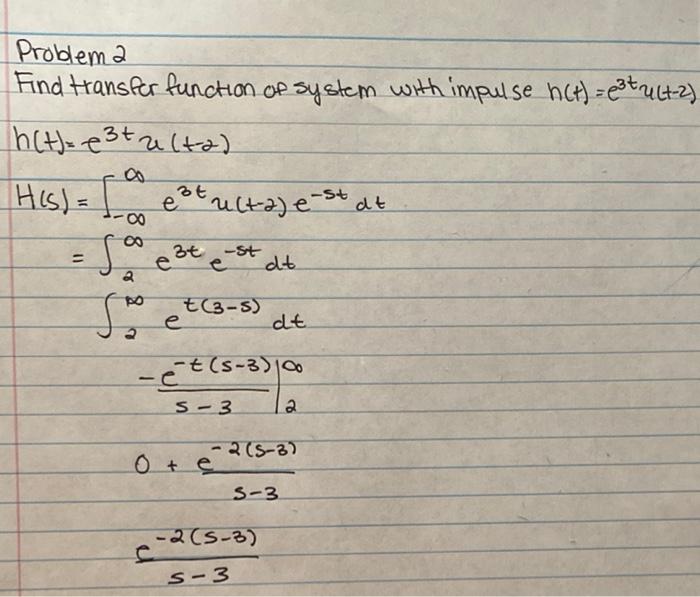 Problem 2
Find transfer function of system with impulse h(t) = e^{3t} u(t-2)
h(t) = e^{3t} u(t-2)
H(s) = ∫_{-∞}^{∞} e^{3t} u(t-2) e^{-st} dt
= ∫_{2}^{∞} e^{3t} e^{-st} dt
∫_{2}^{∞} e^{t(3-s)} dt
-e^{-t(s-3)} / s-3 |_{2}^{∞}
0 + e^{-2(s-3)} / s-3
e^{-2(s-3)} / s-3